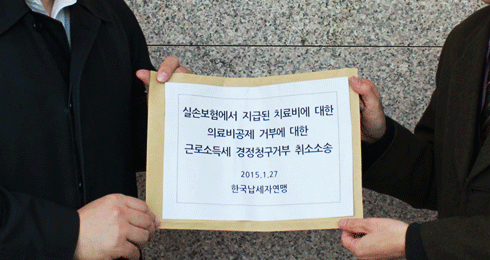 실손보험에서 지급된 치료비에 대한
의료비공제 거부에 대한
근로소득세 경정청구거부 취소소송
2015.1.27
한국납세자연맹